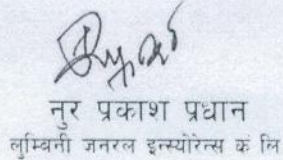 नुर प्रकाश प्रधान
लुम्बिनी जनरल इन्स्योरेन्स कं लि